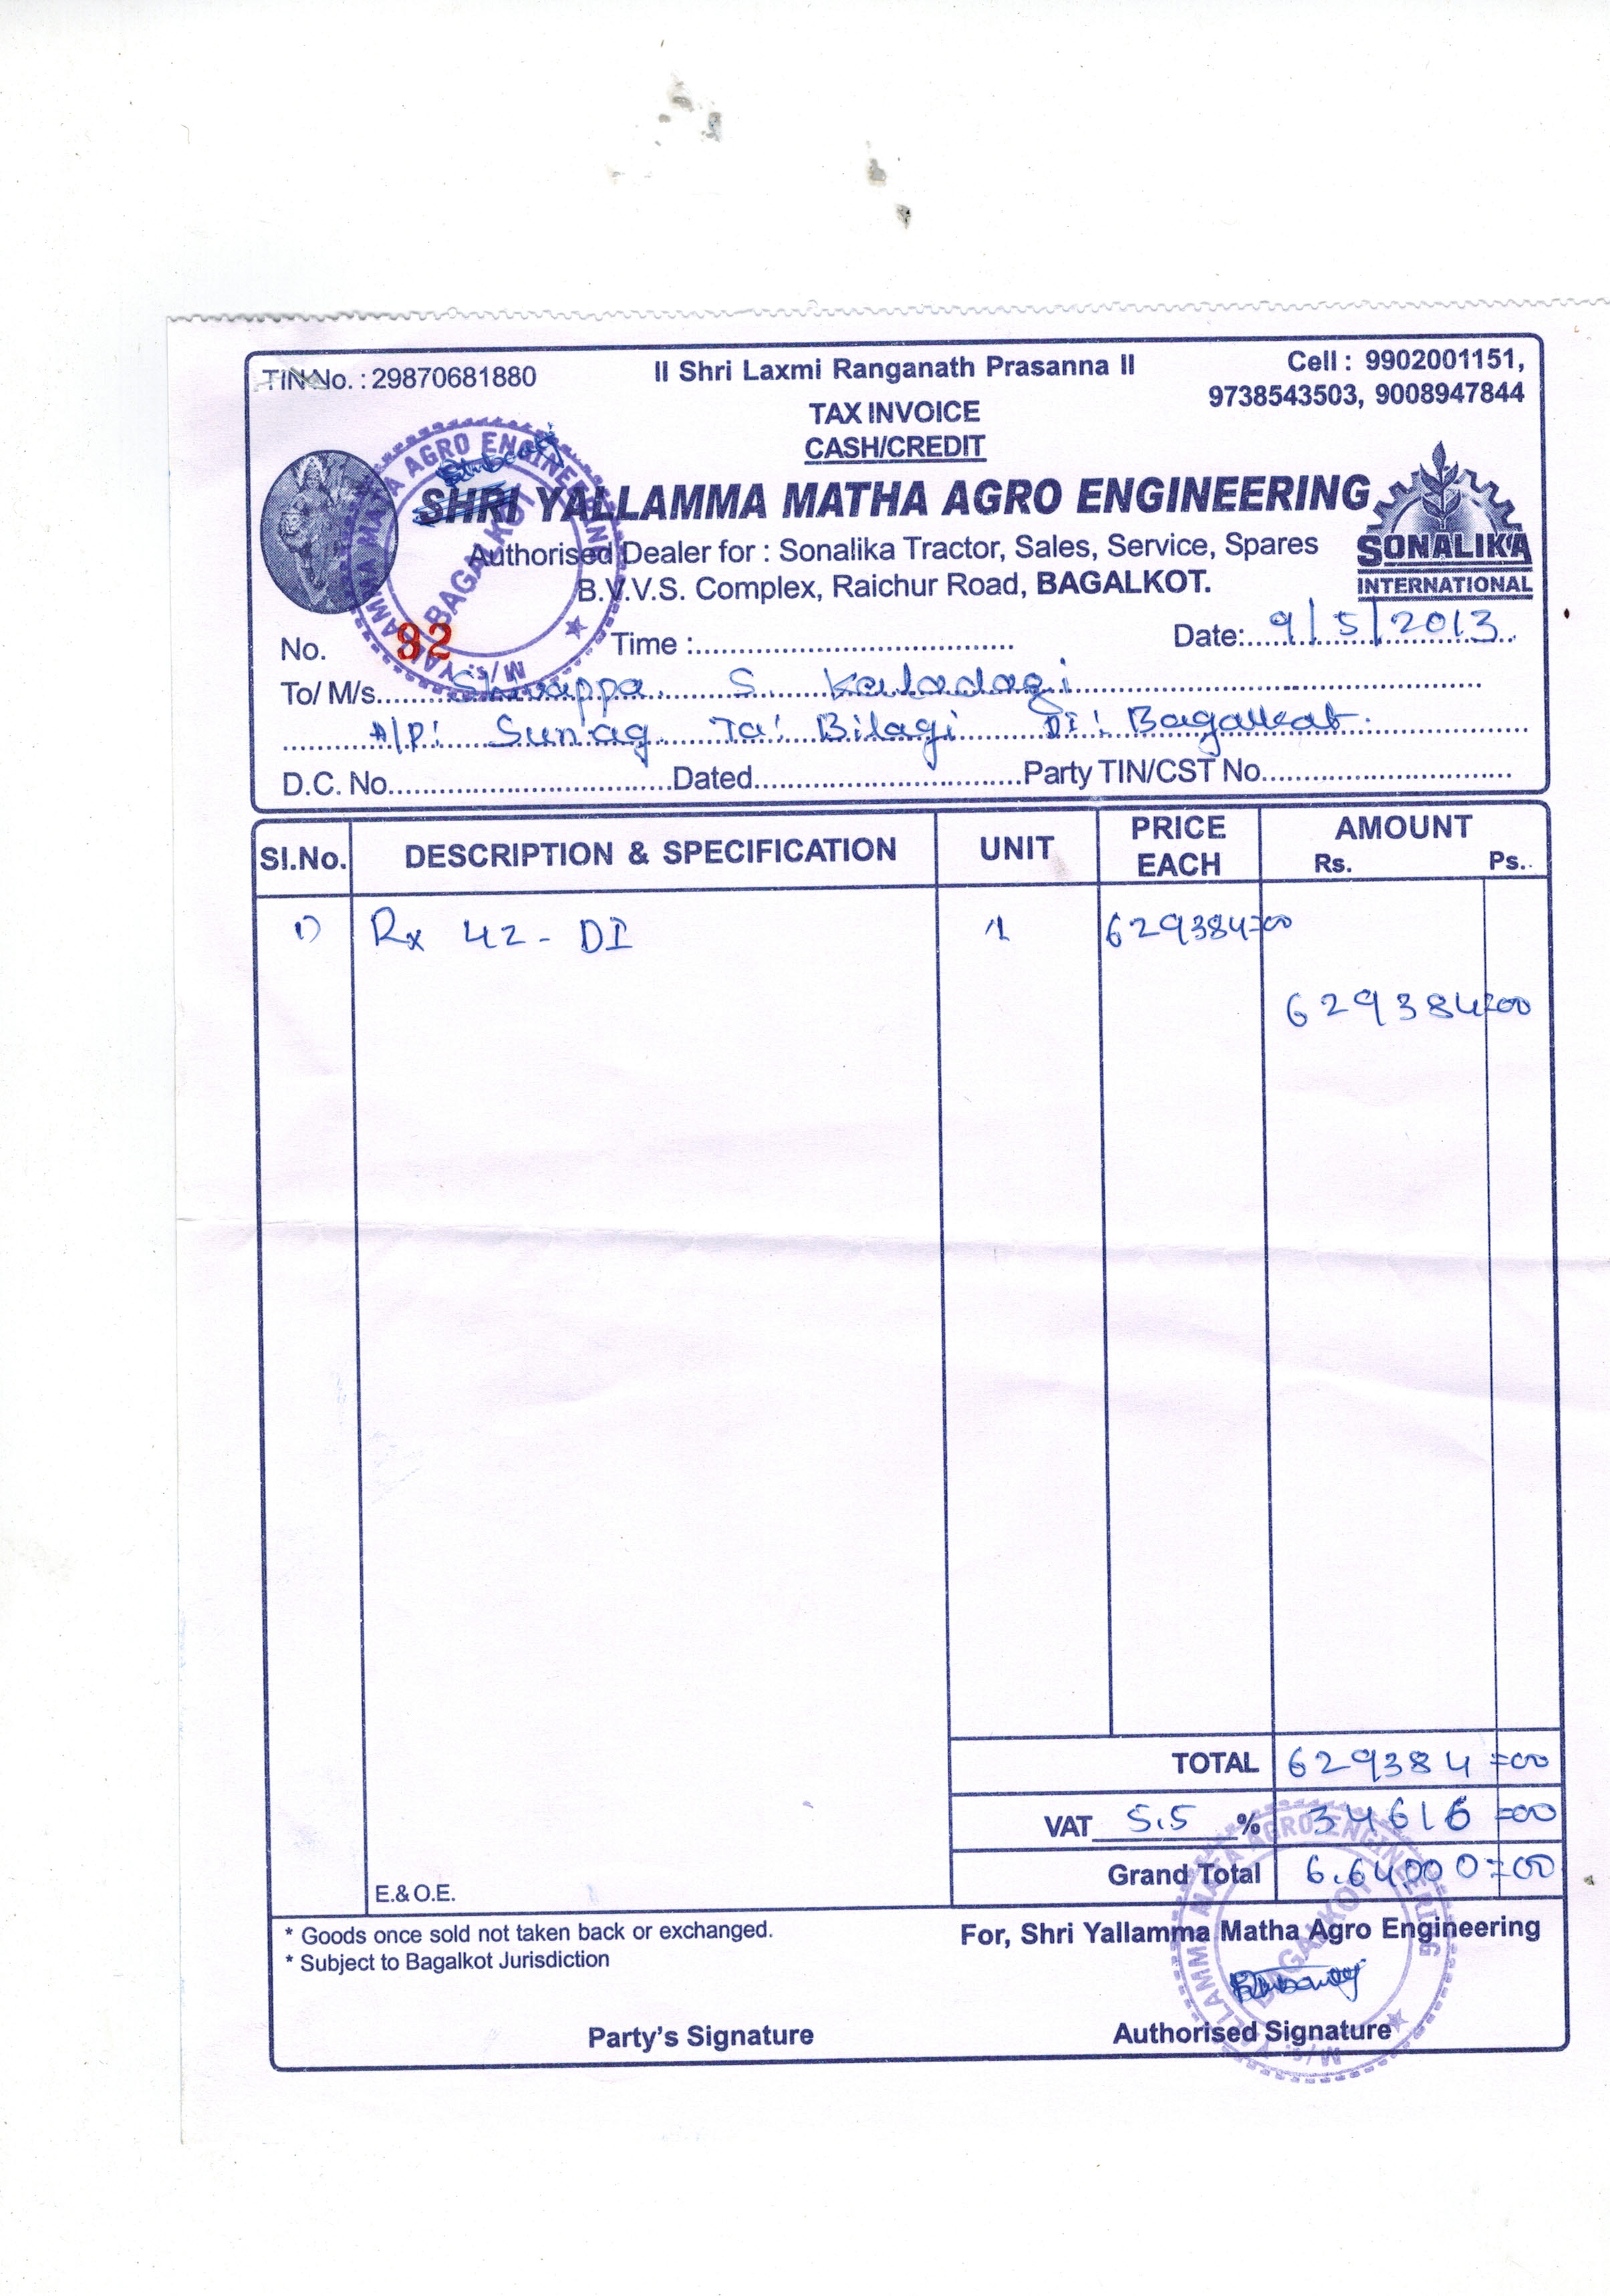 TIN No. : 29870681880
II Shri Laxmi Ranganath Prasanna II
Cell : 9902001151,
9738543503, 9008947844
TAX INVOICE
CASH/CREDIT
SHRI YALLAMMA MATHA AGRO ENGINEERING
Authorised Dealer for : Sonalika Tractor, Sales, Service, Spares
B.V.V.S. Complex, Raichur Road, BAGALKOT.
SONALIKA
INTERNATIONAL
M/s. YALLAMMA MATHA AGRO ENGINEERING
BAGALKOT
No. 92 Time : Date: 9/5/2013
To/ M/s. Shivappa S Kaladagi
A/P: Sunag Ta: Bilagi Di: Bagalkot
D.C. No. Dated Party TIN/CST No.
Sl.No. DESCRIPTION & SPECIFICATION UNIT PRICE EACH AMOUNT Rs. Ps.
1) Rx 42 - DI 1 629384=00
629384=00
TOTAL 629384=00
VAT 5.5 % 34616=00
Grand Total 6,64,000=00
E.& O.E.
* Goods once sold not taken back or exchanged.
* Subject to Bagalkot Jurisdiction
For, Shri Yallamma Matha Agro Engineering
M/s. YALLAMMA MATHA AGRO ENGINEERING
BAGALKOT
Party's Signature Authorised Signature